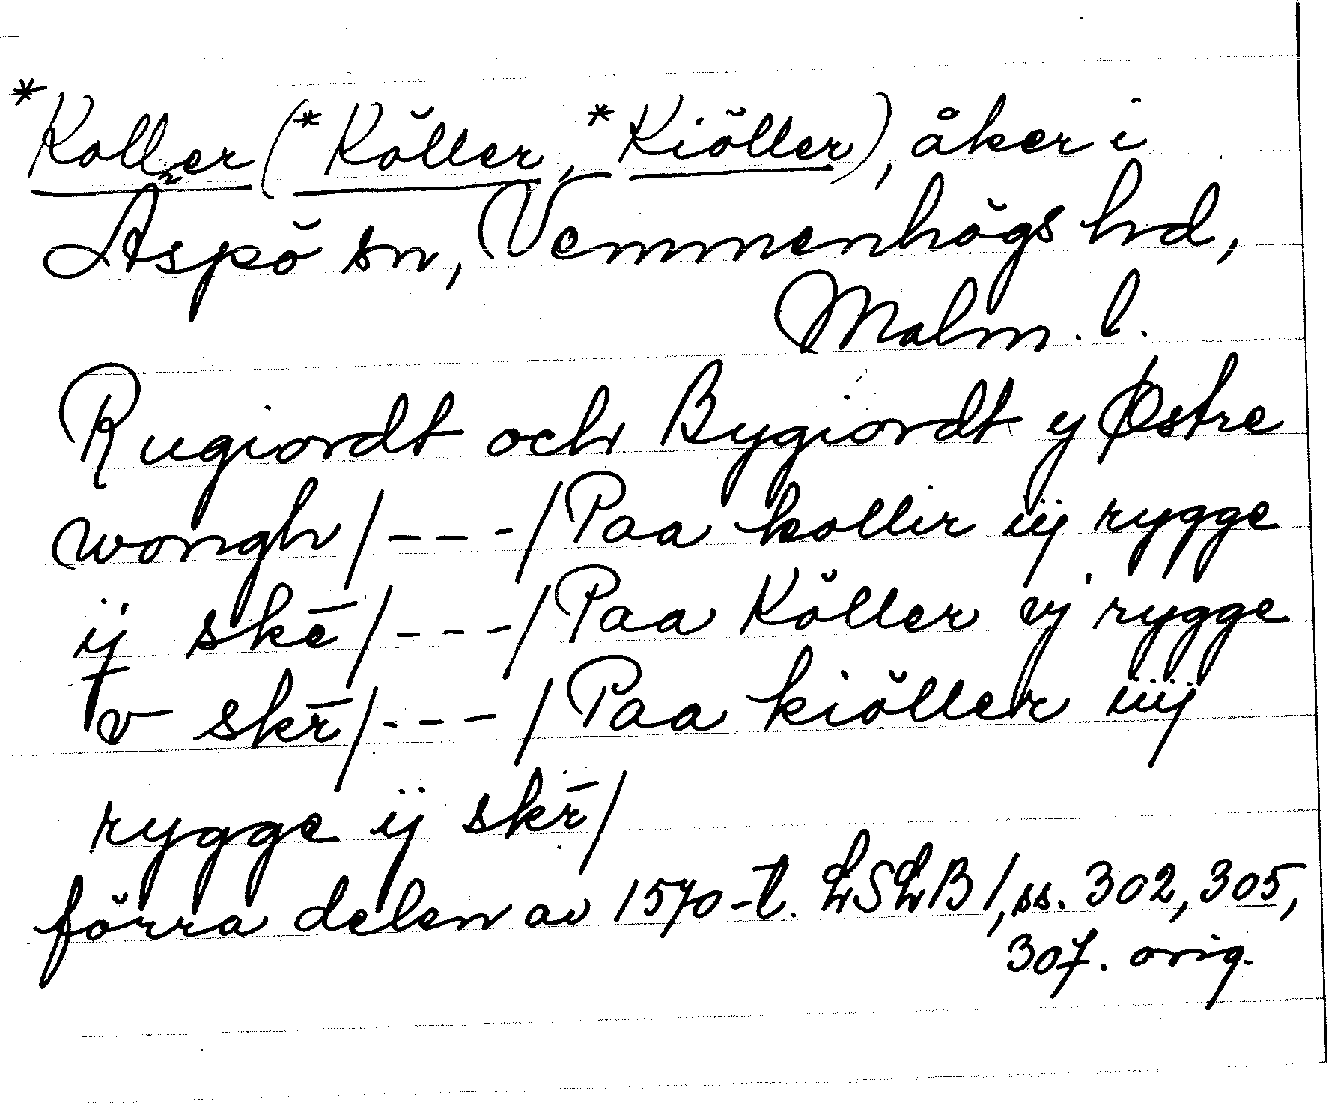 *Koller (*Köller, *Kiöller), åker i
Äspö sn, Vemmenhögs hrd,
Malm. l.
Rugiordt och Bygiordt y Østre
wongh /---/ Paa kollir iij rygge
ij skē /---/ Paa Köller vj rygge
v skr̄ /---/ Paa kiöller iiij
rygge ij skr̄ /
förra delen av 1570-t. LSLB 1, ss. 302, 305,
307. orig.